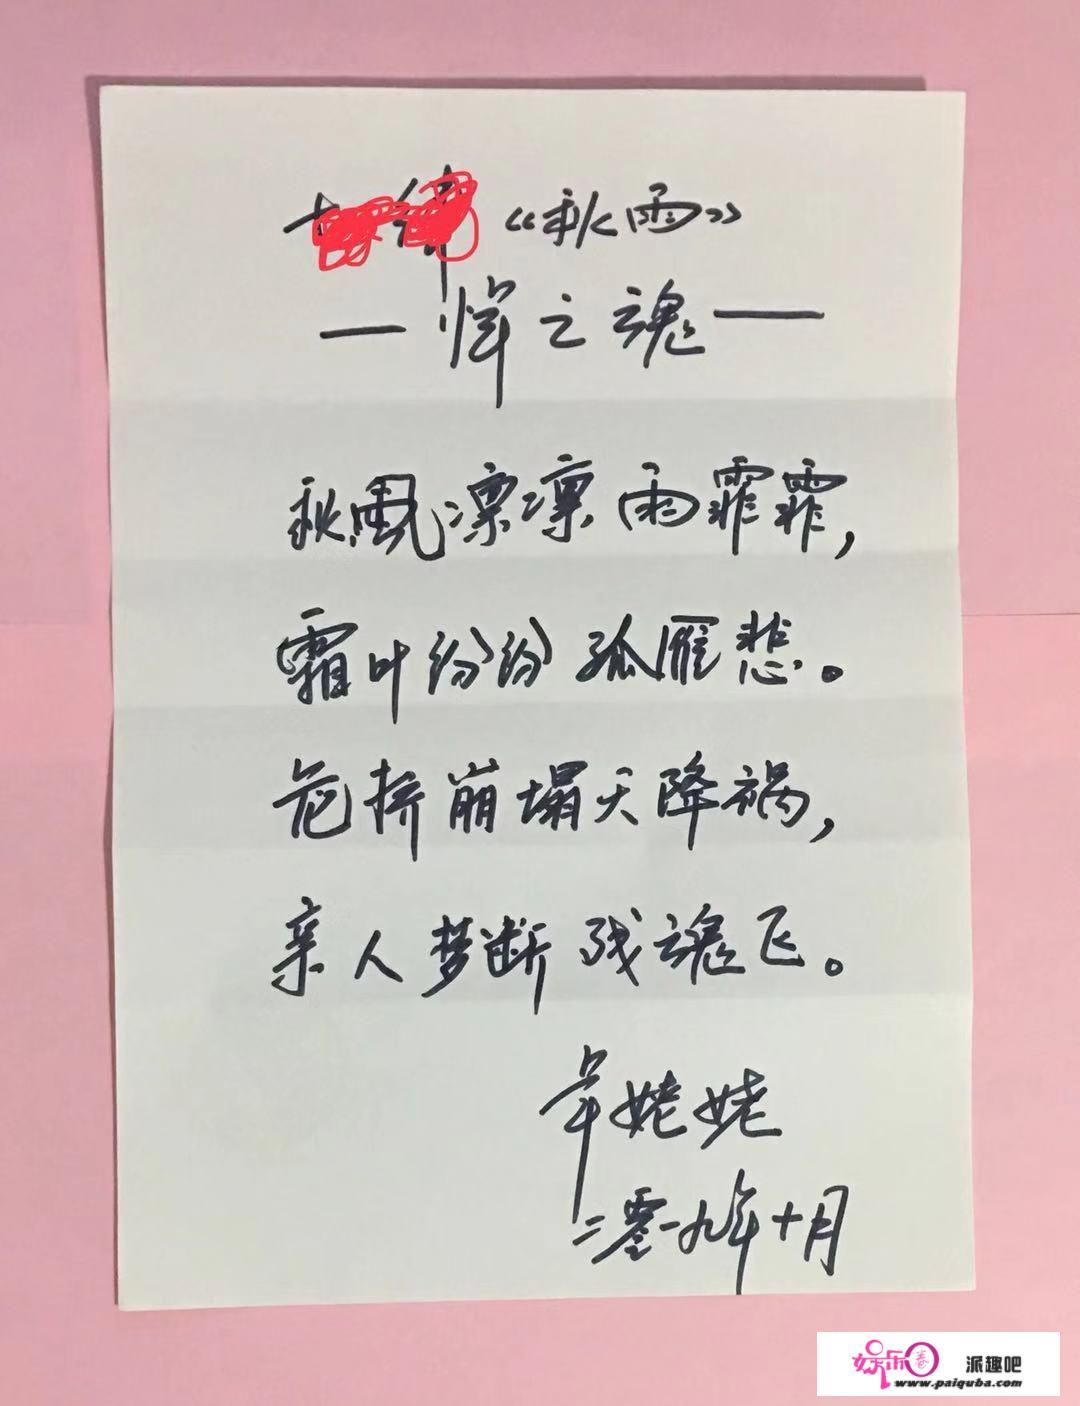 《秋雨》
—悼之魂—
秋风凛凛雨霏霏，
霜叶纷纷孤雁悲。
危桥崩塌天降祸，
亲人梦断残魂飞。
姥姥
二零一九年十月
娱乐圈 派趣吧
www.paiquba.com